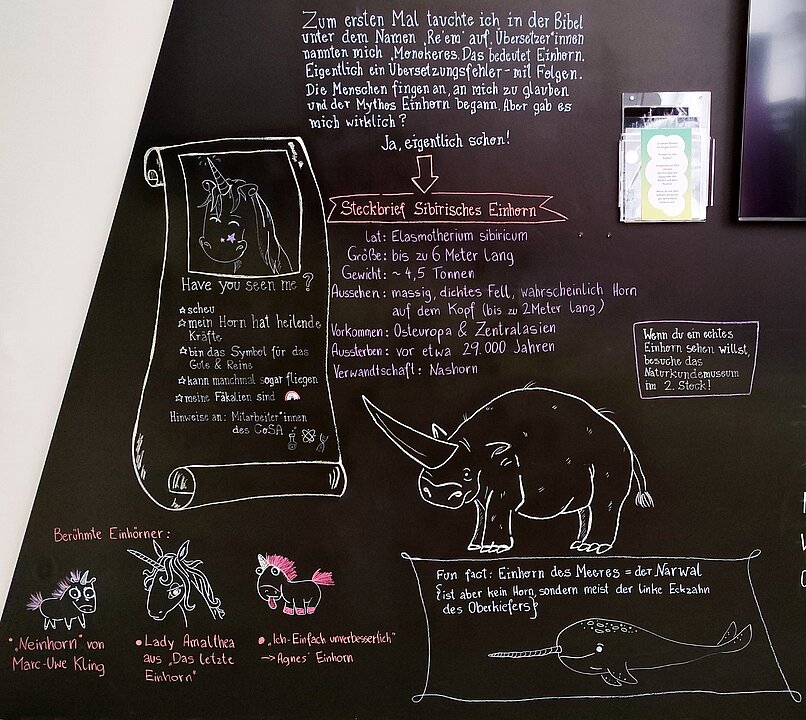 Zum ersten Mal tauchte ich in der Bibel
unter dem Namen „Re'em" auf. Übersetzer*innen
nannten mich „Monokeres. Das bedeutet Einhorn.
Eigentlich ein Übersetzungsfehler - mit Folgen.
Die Menschen fingen an, an mich zu glauben
und der Mythos Einhorn begann. Aber gab es
mich wirklich?
Ja, eigentlich schon!
Have you seen me?
scheu
mein Horn hat heilende
Kräfte
bin das Symbol für das
Gute & Reine
kann manchmal sogar fliegen
meine Fäkalien sind
Hinweise an: Mitarbeiter*innen
des CoSA
Steckbrief Sibirisches Einhorn
lat: Elasmotherium sibiricum
Größe: bis zu 6 Meter lang
Gewicht: ~ 4,5 Tonnen
Aussehen: massig, dichtes Fell, wahrscheinlich Horn
auf dem Kopf (bis zu 2 Meter lang)
Vorkommen: Osteuropa & Zentralasien
Aussterben: vor etwa 29.000 Jahren
Verwandtschaft: Nashorn
Wenn du ein echtes
Einhorn sehen willst,
besuche das
Naturkundemuseum
im 2. Stock!
Berühmte Einhörner:
"„Neinhorn" von
Marc-Uwe Kling
Lady Amalthea
aus „Das letzte
Einhorn"
„Ich-Einfach unverbesserlich"
→ Agnes' Einhorn
Fun fact: Einhorn des Meeres = der Narwal
{ist aber kein Horn, sondern meist der linke Eckzahn
des Oberkiefers}